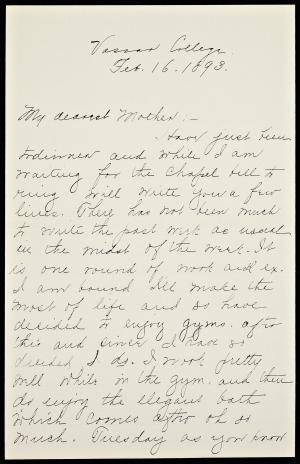 Vassar College.
Feb. 16. 1893.
My dearest Mother:-
Have just been
to dinner and while I am
waiting for the chapel bell to
ring will write you a few
lines. There has not been much
to write the past week as usual
in the midst of the week. It
is one round of work and ex.
I am bound I'll make the
most of life and so have
decided to enjoy gym. after
this and since I have so
decided I do. I work pretty
well while in the gym. and then
do enjoy the elegant bath
which comes after oh so
much. Tuesday as you know